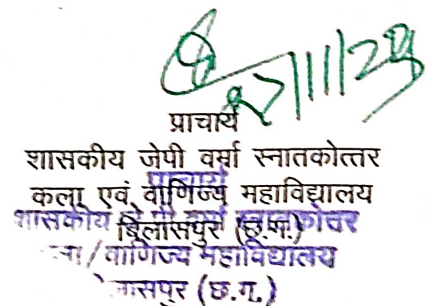 प्राचार्य
शासकीय जेपी वर्मा स्नातकोत्तर
कला एवं वाणिज्य महाविद्यालय
बिलासपुर (छ.ग.)
प्राचार्य
शासकीय जे.पी. वर्मा स्नातकोत्तर
कला/वाणिज्य महाविद्यालय
बिलासपुर (छ.ग.)